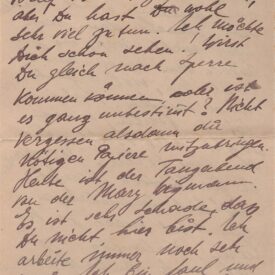 aber Du hast Du wohl
sehr viel zu tun. Ich möchte
Dich schon sehen. Wirst
Du gleich nach Sperre
kommen können oder ist
es ganz unbestimmt? Nicht
vergessen alsdann die
nötigen Papiere mitzubringen.
Heute ist der Tanzabend
von der Mary Wigmann.
Es ist sehr schade, dass
Du nicht hier bist. Ich
arbeite immer noch sehr
Ich bin faul und